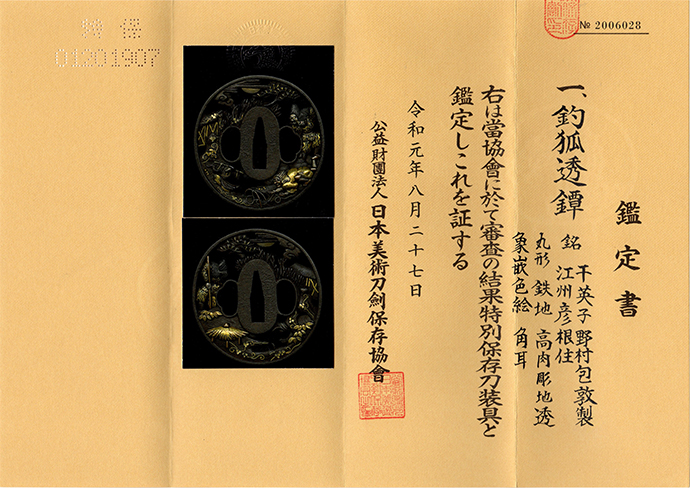 № 2006028
鑑定書
一、釣狐透鐔
銘 干英子野村包敦製
江州彦根住
丸形 鉄地 高肉彫地透
象嵌色絵 角耳
右は當協會に於て審査の結果特別保存刀装具と
鑑定しこれを証する
令和元年八月二十七日
公益財團法人 日本美術刀劍保存協會
01201907